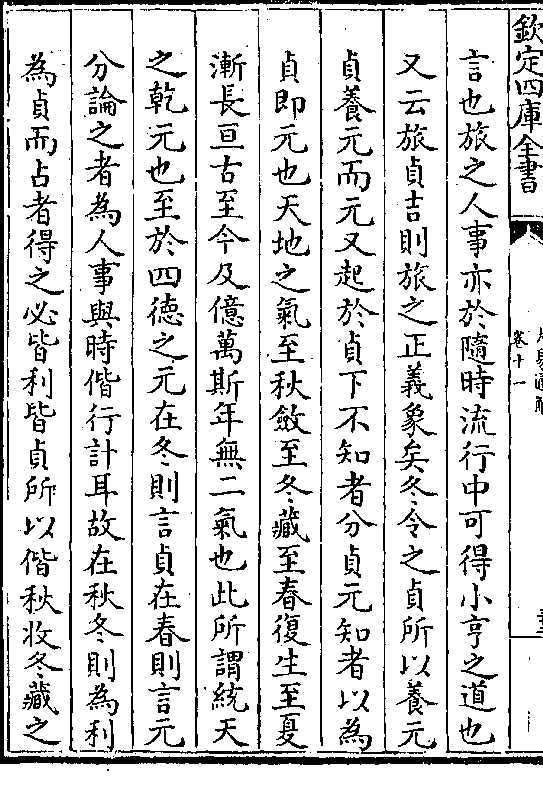 欽定四庫全書
卷十一
言也旅之人事亦於隨時流行中可得小亨之道也
又云旅貞吉則旅之正義象矣冬令之貞所以養元
貞養元而元又起於貞下不知者分貞元知者以為
貞即元也天地之氣至秋斂至冬藏至春復生至夏
漸長亘古至今及億萬斯年無二氣也此所謂統天
之乾元也至於四德之元在冬則言貞在春則言元
分論之者為人事與時偕行計耳故在秋冬則為利
為貞而占者得之必皆利皆貞所以偕秋收冬藏之